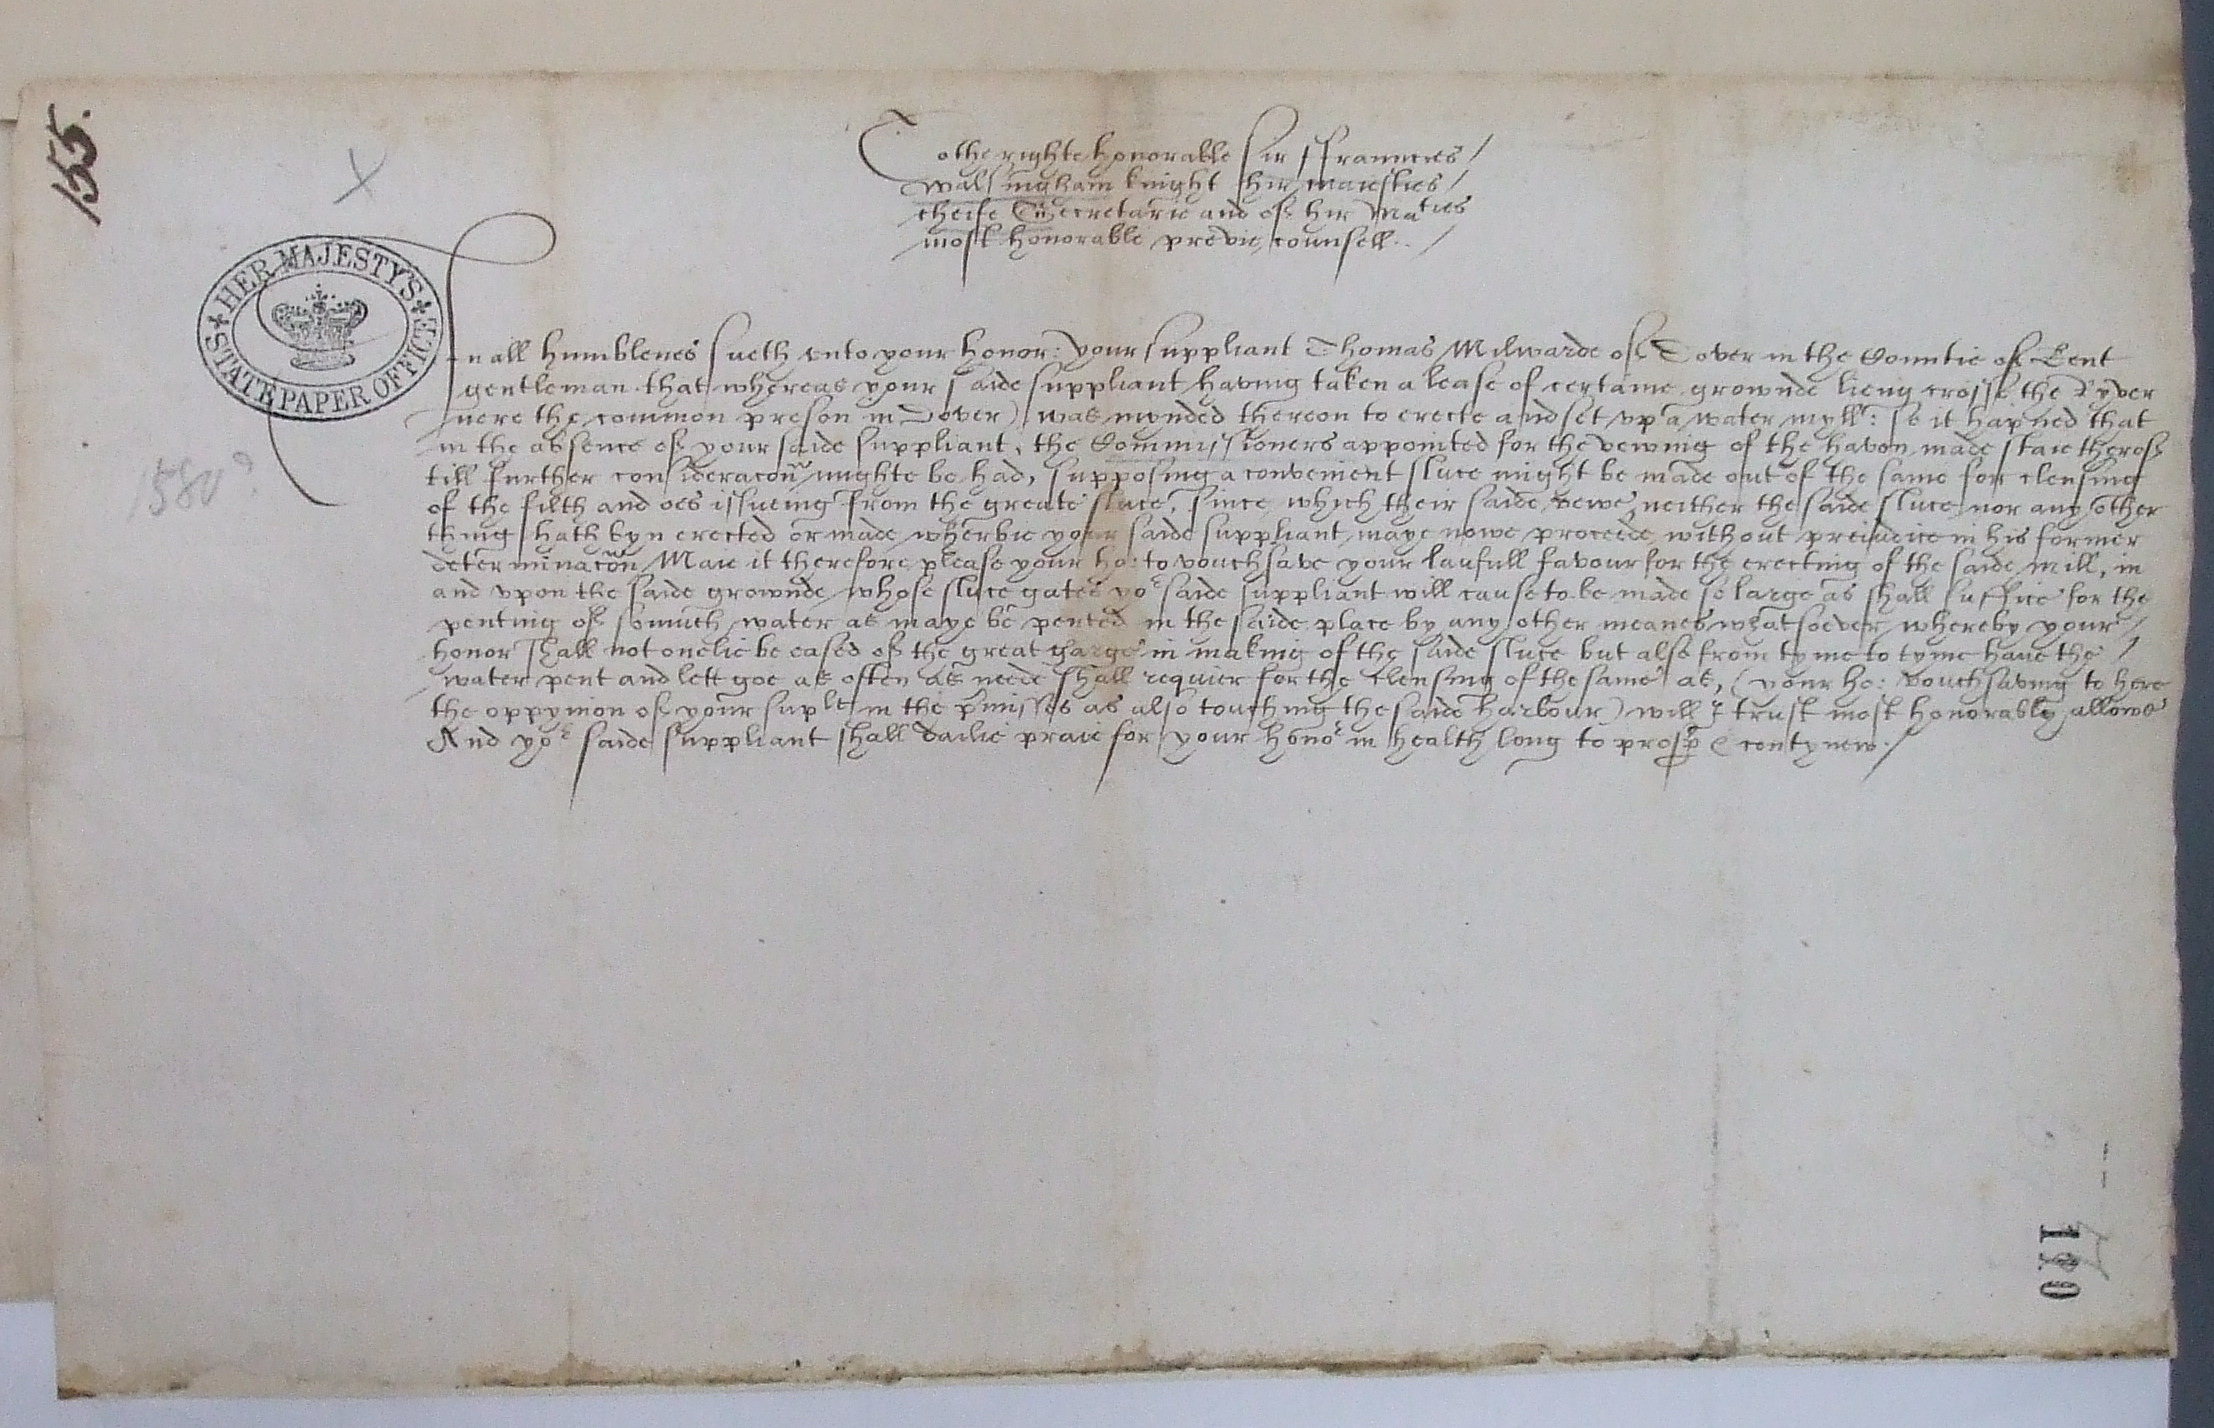 155.
To the righte honorable Sir ffrannces /
Walsingham knight hir maiesties /
cheife Secretarie and of hir Maties
most honorable previe counsell. /
HER MAJESTY'S
STATE PAPER OFFICE
In all humblenes sueth unto your honor: your suppliant Thomas Milwarde of Dover in the Countie of Kent
gentleman that whereas your saide suppliant having taken a lease of certaine grownde lieng crosse the Ryver
(nere the common preson in Dover) was mynded thereon to erecte and set up a water myll: so it hapned that
in the absence of your saide suppliant, the Commissioners appointed for the vewing of the havon made staie therof
till further consideracon mighte be had, supposing a convenient sluce might be made out of the same for clensing
of the filth and oes issueing from the greate sluce, since which their saide vewe neither the saide sluce nor any other
thing hath byn erected or made wherbie your saide suppliant maye nowe proceede without preiudice in his former
determinacon Maie it therefore please your ho: to vouchsave your laufull favour for the erecting of the saide mill, in
and upon the saide grownde whose sluce gates yor saide suppliant will cause to be made so large as shall suffice for the
penting of somuch water as maye be pented in the saide place by any other meanes whatsoever whereby your /
honor shall not onelie be eased of the great charge in making of the saide sluce but also from tyme to tyme have the /
water pent and lett goe as often as neede shall requier for the clensing of the same as, (your ho: vouchsaving to here
the oppynion of your suplt in the pmisses as also touching the saide harbour) will I trust most honorably allowe
And yor saide suppliant shall dailie praie for your honor in health long to prosp & contynew. /
1580?
180